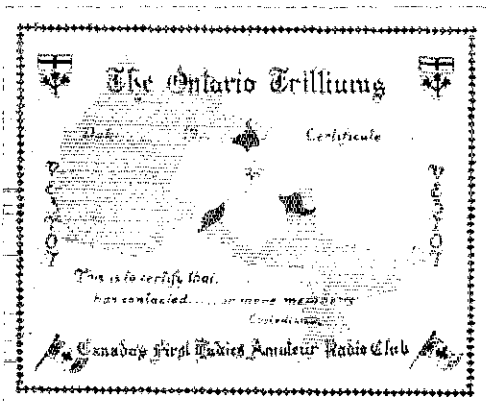 The Ontario Trilliums
Certificate
This is to certify that.
has contacted..... or more members
Custodian
Canada's First Ladies Amateur Radio Club